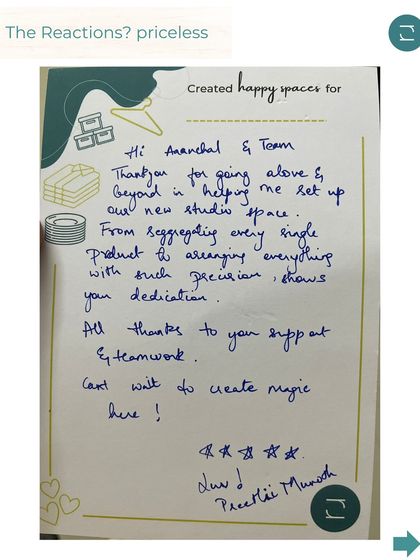 The Reactions? priceless
Created happy spaces for
Hi Aananchal & Team
Thankyou for going above &
beyond in helping me set up
our new studio space.
From seggregating every single
product to arranging everything
with such precision, shows
your dedication.
All thanks to your support
& teamwork.
Cant wait to create magic
here !
Preethi Munoth